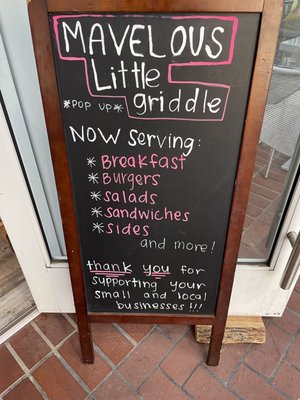 MAVELOUS
Little
*POP UP* griddle
NOW SERVING:
* BREAKFAST
* BURGERS
* SALADS
* SANDWICHES
* SIDES
and more!
thank you for
supporting your
small and local
businesses!!!